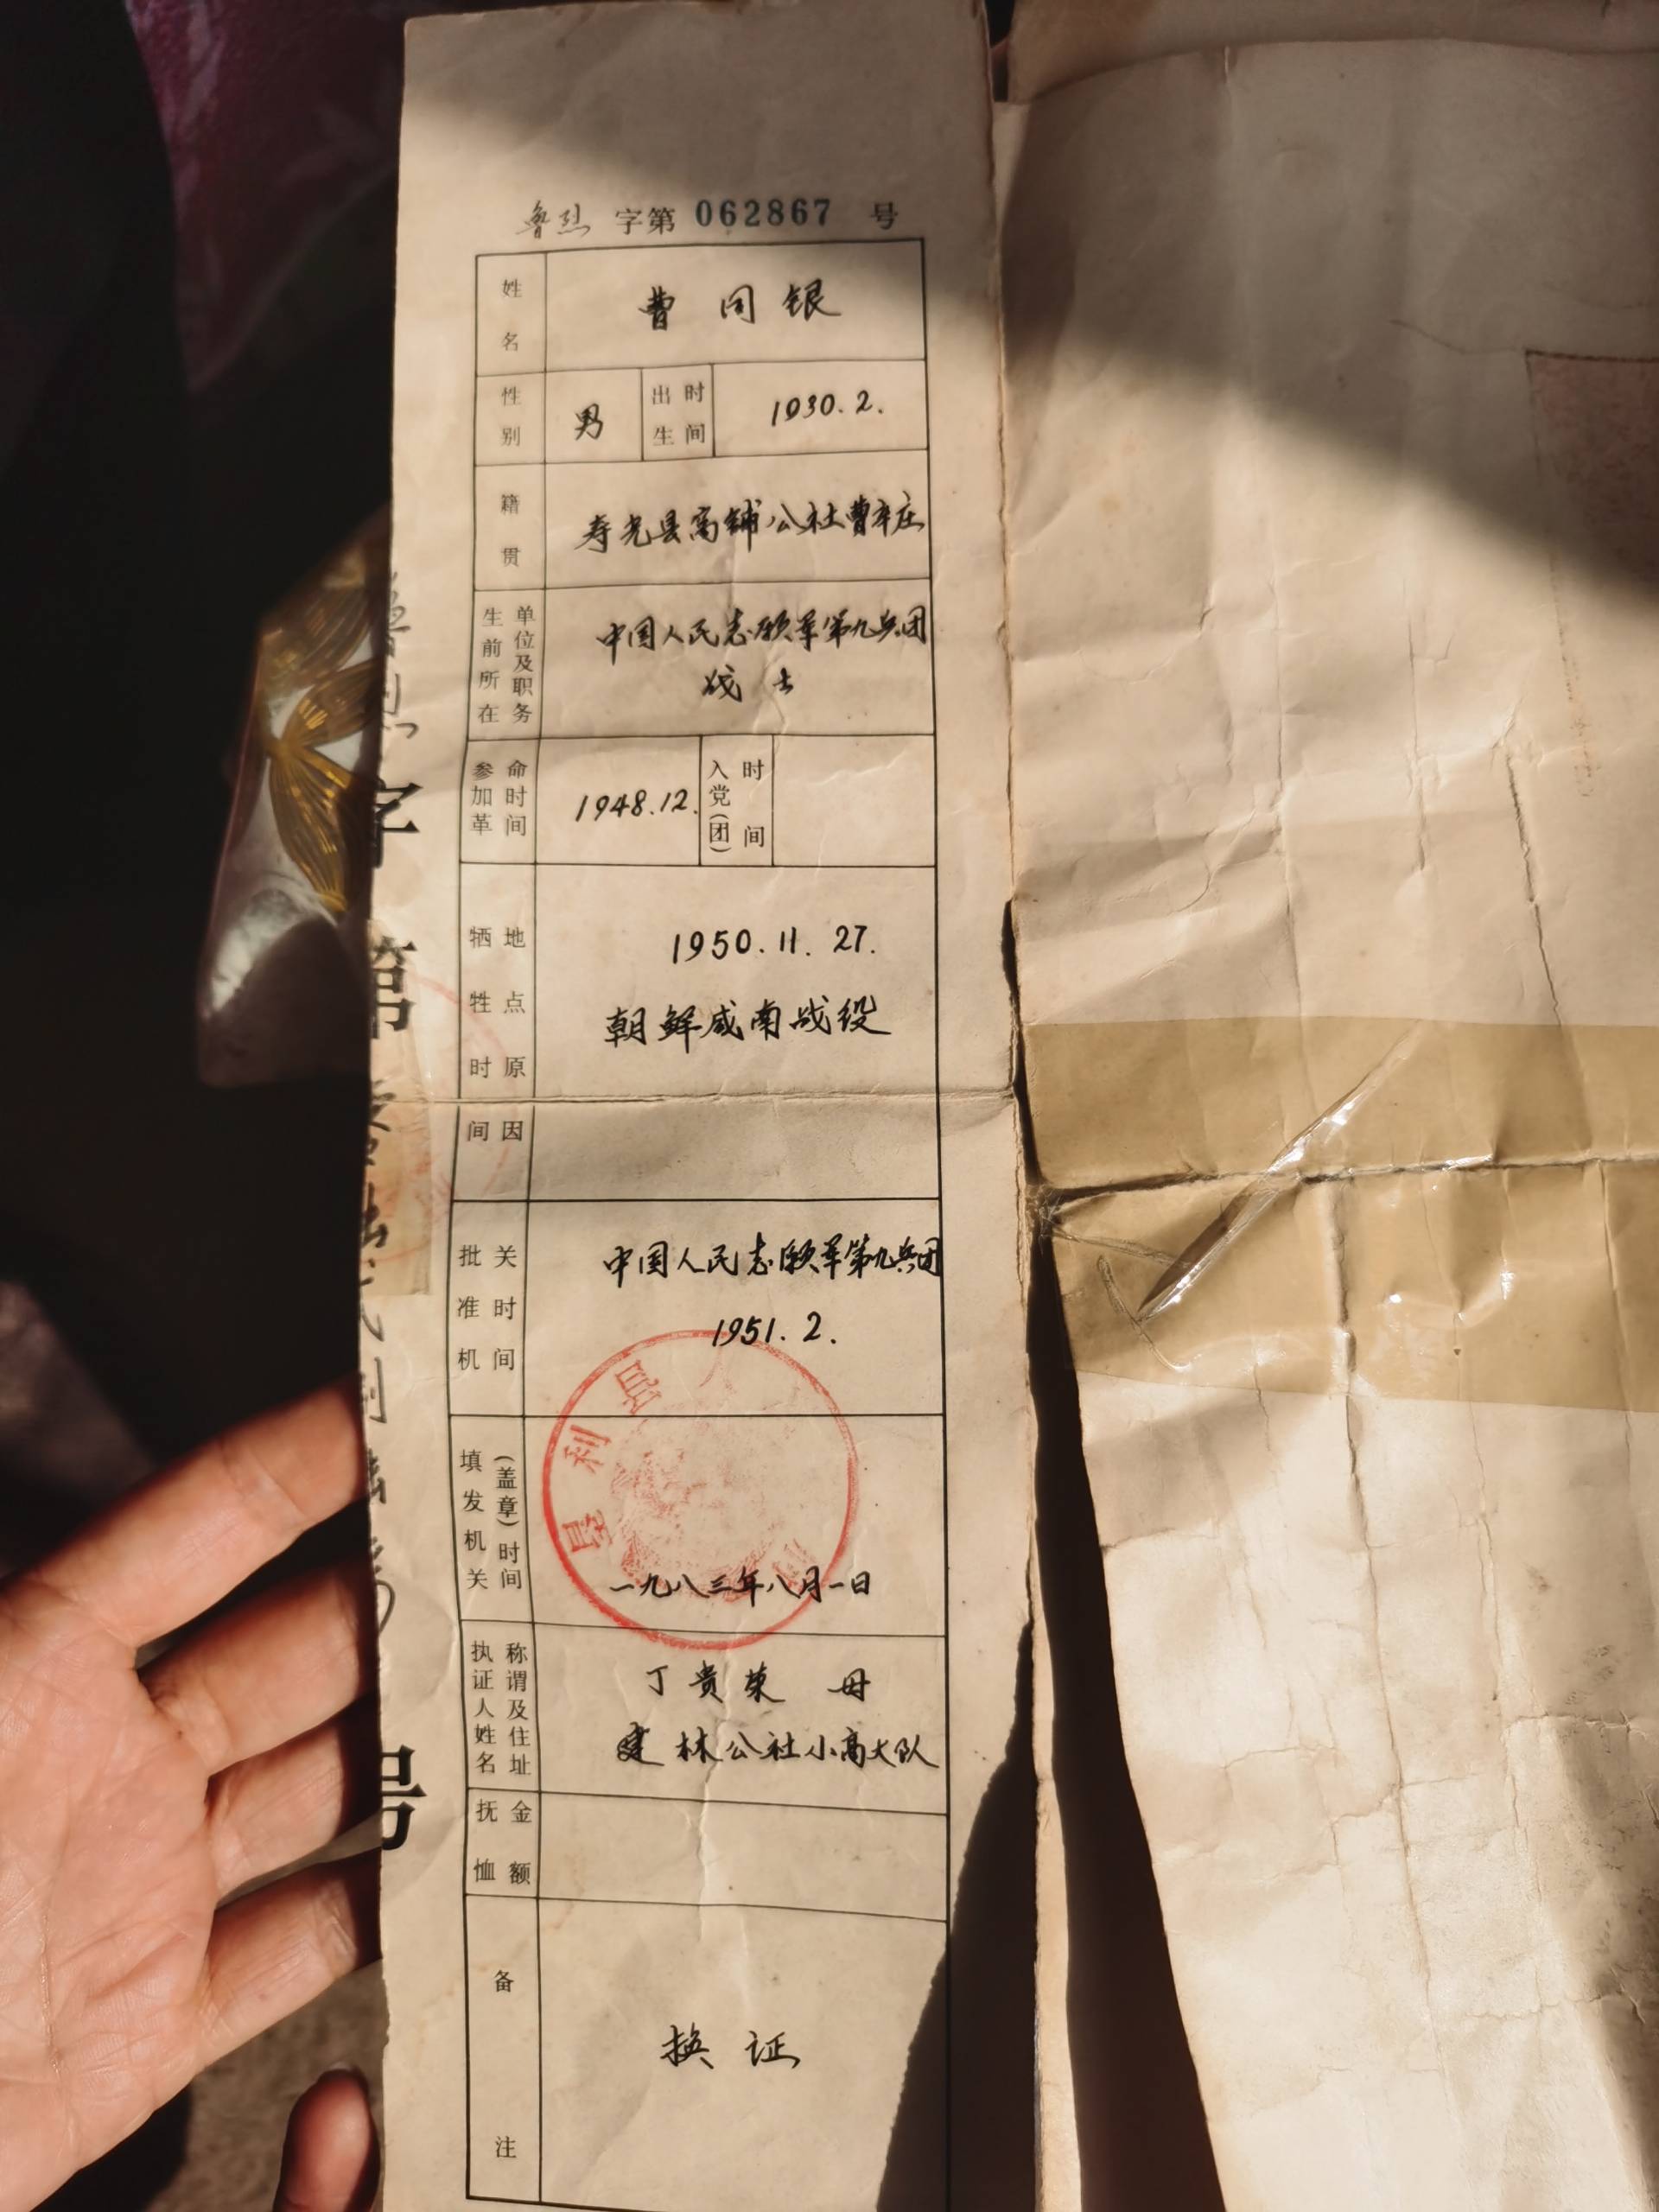 鲁烈 字第 062867 号
姓名 曹同银
性别 男 出生时间 1930.2.
籍贯 寿光县高铺公社曹辛庄
生前所在单位及职务 中国人民志愿军第九兵团
战士
参加革命时间 1948.12. 入党(团)时间
牺牲时间地点原因 1950.11.27.
朝鲜咸南战役
批准机关时间 中国人民志愿军第九兵团
1951.2.
填发机关(盖章)时间 垦利县人
一九八三年八月一日
执证人姓名称谓及住址 丁贵荣 母
建林公社小高大队
抚恤金额
备注 换证
字第
号